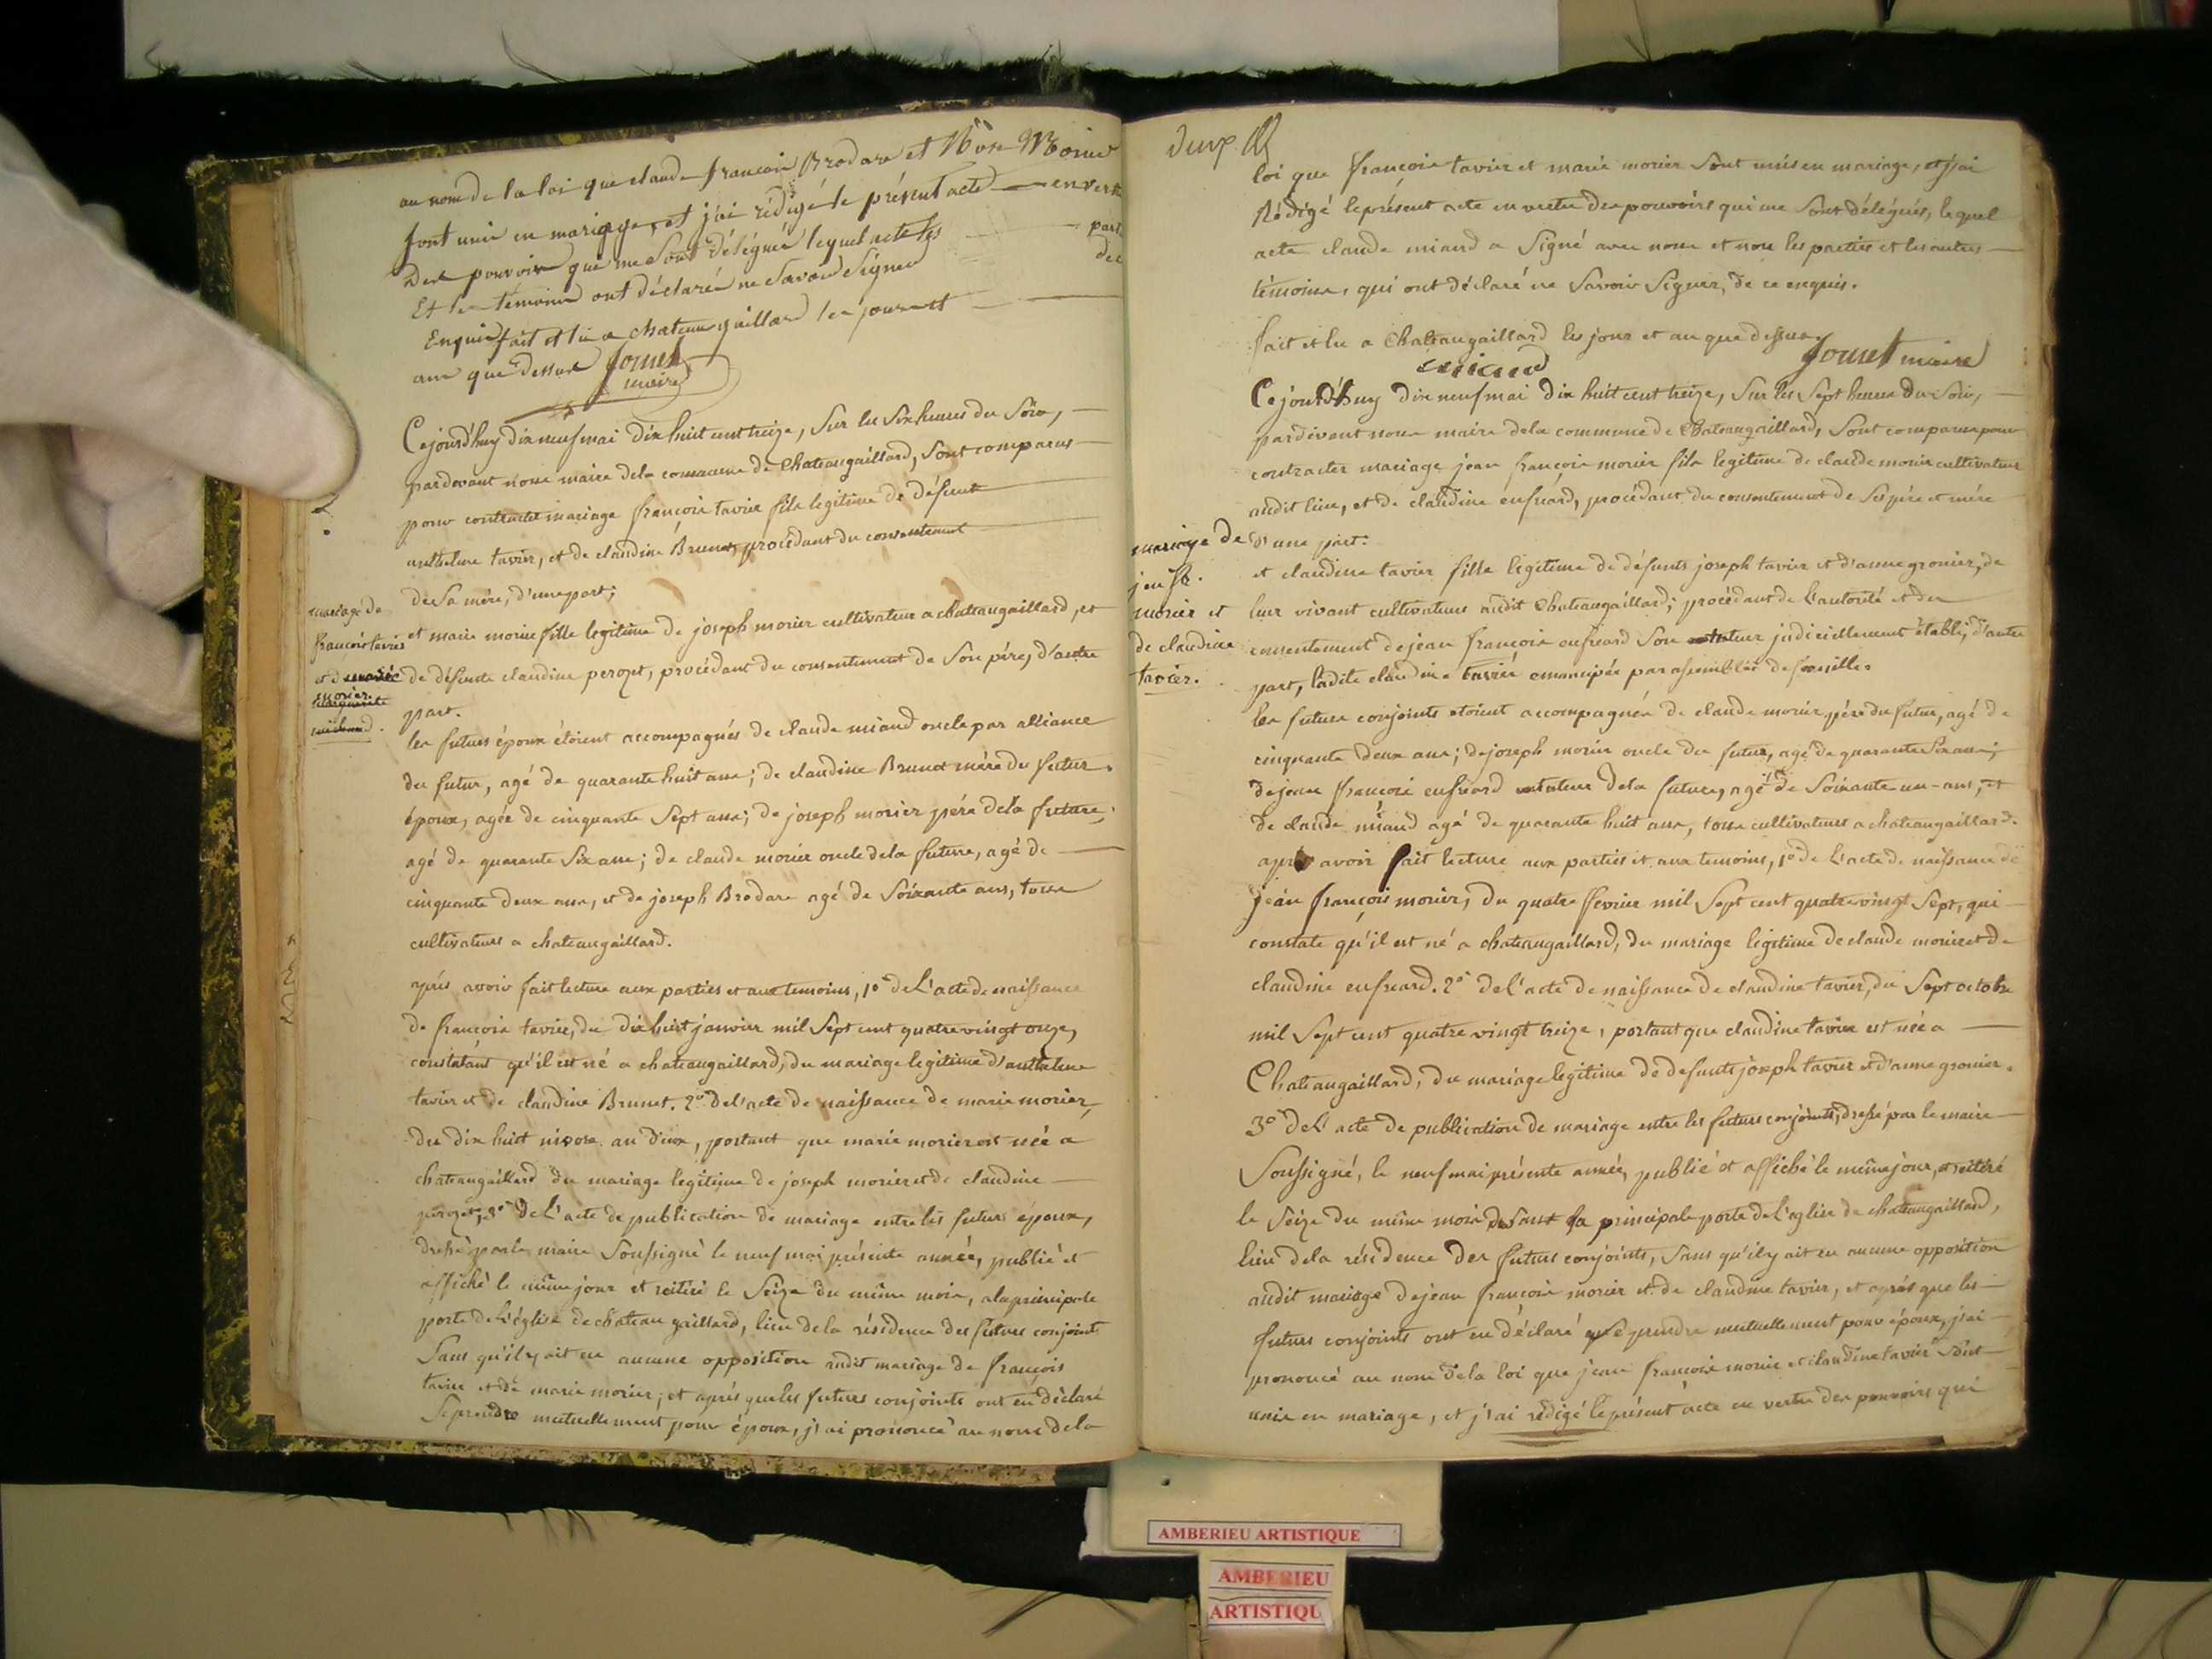 au nom de la loi que claude françois Brodare et
sont unis en mariage, et j'ai rédigé le présent acte en vertu
Des pouvoirs qui me sont délégués lequel acte les parti
Et les témoins ont déclarés ne savoir signer de
Enquis fait et lu a chateaugaillard les jour et
ans que dessus Journet
maire
Cejourd'huy dix neuf mai dix huit cent treize, sur les six heures du soir,
pardevant nous maire dela commune de Chateaugaillard, sont comparus
pour contracter mariage françois tavier fils legitime de défunt
anthelme tavier, et de claudine Brunet, procédant du consentement
de sa mère, d'une part;
mariage de
françois tavier
et de marie
morier.
marguerite
michaud.
et marie morier fille legitime de joseph morier cultivateur a chateaugaillard, et
de défunte claudine perozet, procédant du consentement de son père, d'autre
part.
les futurs époux étoient accompagnés de claude miand oncle par alliance
du futur, agé de quarante huit ans; de claudine Brunet mère du futur
époux, agée de cinquante sept ans; de joseph morier père dela future;
agé de quarante six ans; de claude morier oncle dela future, agé de
cinquante deux ans, et de joseph Brodare agé de soixante ans, tous
cultivateurs a chateaugaillard.
après avoir fait lecture aux parties et aux temoins, 1° de L'acte de naissance
de françois tavier, du dix huit janvier mil sept cent quatre vingt onze,
constatant qu'il est né a chateaugaillard, du mariage legitime d'anthelme
tavier et de claudine Brunet. 2° de l'acte de naissance de marie morier,
du dix huit nivose an deux, portant que marie morier est née a
chateaugaillard du mariage legitime de joseph morier et de claudine
perozet, 3° de L'acte de publication de mariage entre les futurs époux,
dressé par le maire soussigné le neuf mai présente année, publié et
affiché le même jour et réitéré le seize du même mois, a la principale
porte de L'église de chateau gaillard, lieu dela résidence des futurs conjoints
sans qu'il y ait eu aucune opposition audit mariage de françois
tavier et de marie morier; et après que les futurs conjoints ont eu déclaré
se prendre mutuellement pour époux, j'ai prononcé au nom dela
loi que françois tavier et marie morier sont unis en mariage, et j'ai
Rédigé le présent acte en vertu des pouvoirs qui me sont délégués, lequel
acte claude miand a signé avec nous et non les parties et les autres
témoins, qui ont déclaré ne savoir signer, de ce enquis.
fait et lu a Chateaugaillard les jour et an que dessus.
miand Journet maire
Cejourd'huy dix neuf mai dix huit cent treize, sur les sept heures du soir,
pardevant nous maire dela commune de Chateaugaillard, sont comparus pour
contracter mariage jean françois morier fils legitime de claude morier cultivateur
audit lieu, et de claudine enfreard, procédant du consentement de ses père et mère
d'une part.
mariage de
jean f.
morier et
de claudine
tavier.
et claudine tavier fille legitime de défunts joseph tavier et d'anne gronier, de
leur vivant cultivateurs audit Chateaugaillard; procédant de L'autorité et du
consentement de jean françois enfreard son tuteur judiciellement établi, d'autre
part, ladite claudine tavier emancipée par assemblée de famille.
les futurs conjoints étoient accompagnés de claude morier, père du futur, agé de
cinquante deux ans; de joseph morier oncle du futur, agé de quarante six ans;
de jean françois enfreard tuteur dela future, agé de soixante un ans, et
de claude miand agé de quarante huit ans, tous cultivateurs a chateaugaillard.
après avoir fait lecture aux parties et aux temoins, 1° de L'acte de naissance de
jean françois morier, du quatre fevrier mil sept cent quatre vingt sept, qui
constate qu'il est né a chateaugaillard, du mariage legitime de claude morier et de
claudine enfreard. 2° de L'acte de naissance de claudine tavier, du sept octobre
mil sept cent quatre vingt treize, portant que claudine tavier est née a
Chateaugaillard, du mariage legitime de defunts joseph tavier et d'anne gronier.
3° de L'acte de publication de mariage entre les futurs conjoints, dressé par le maire
soussigné, le neuf mai présente année, publié et affiché le même jour, et réitéré
le seize du même mois devant la principale porte de L'église de chateaugaillard,
lieu dela résidence des futurs conjoints, sans qu'il y ait eu aucune opposition
audit mariage de jean françois morier et de claudine tavier, et après que les
futurs conjoints ont eu déclaré se prendre mutuellement pour époux, j'ai
prononcé au nom dela loi que jean françois morier et claudine tavier sont
unis en mariage, et j'ai rédigé le présent acte en vertu des pouvoirs qui
AMBERIEU ARTISTIQUE
AMBERIEU
ARTISTIQU